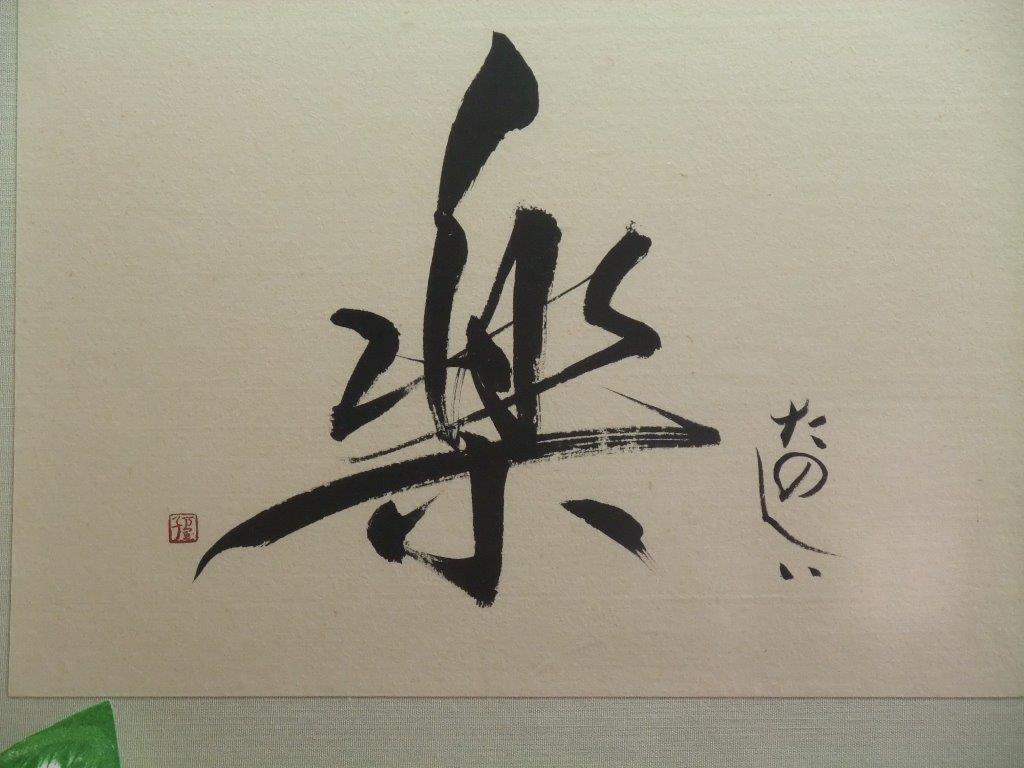 楽
たのしい